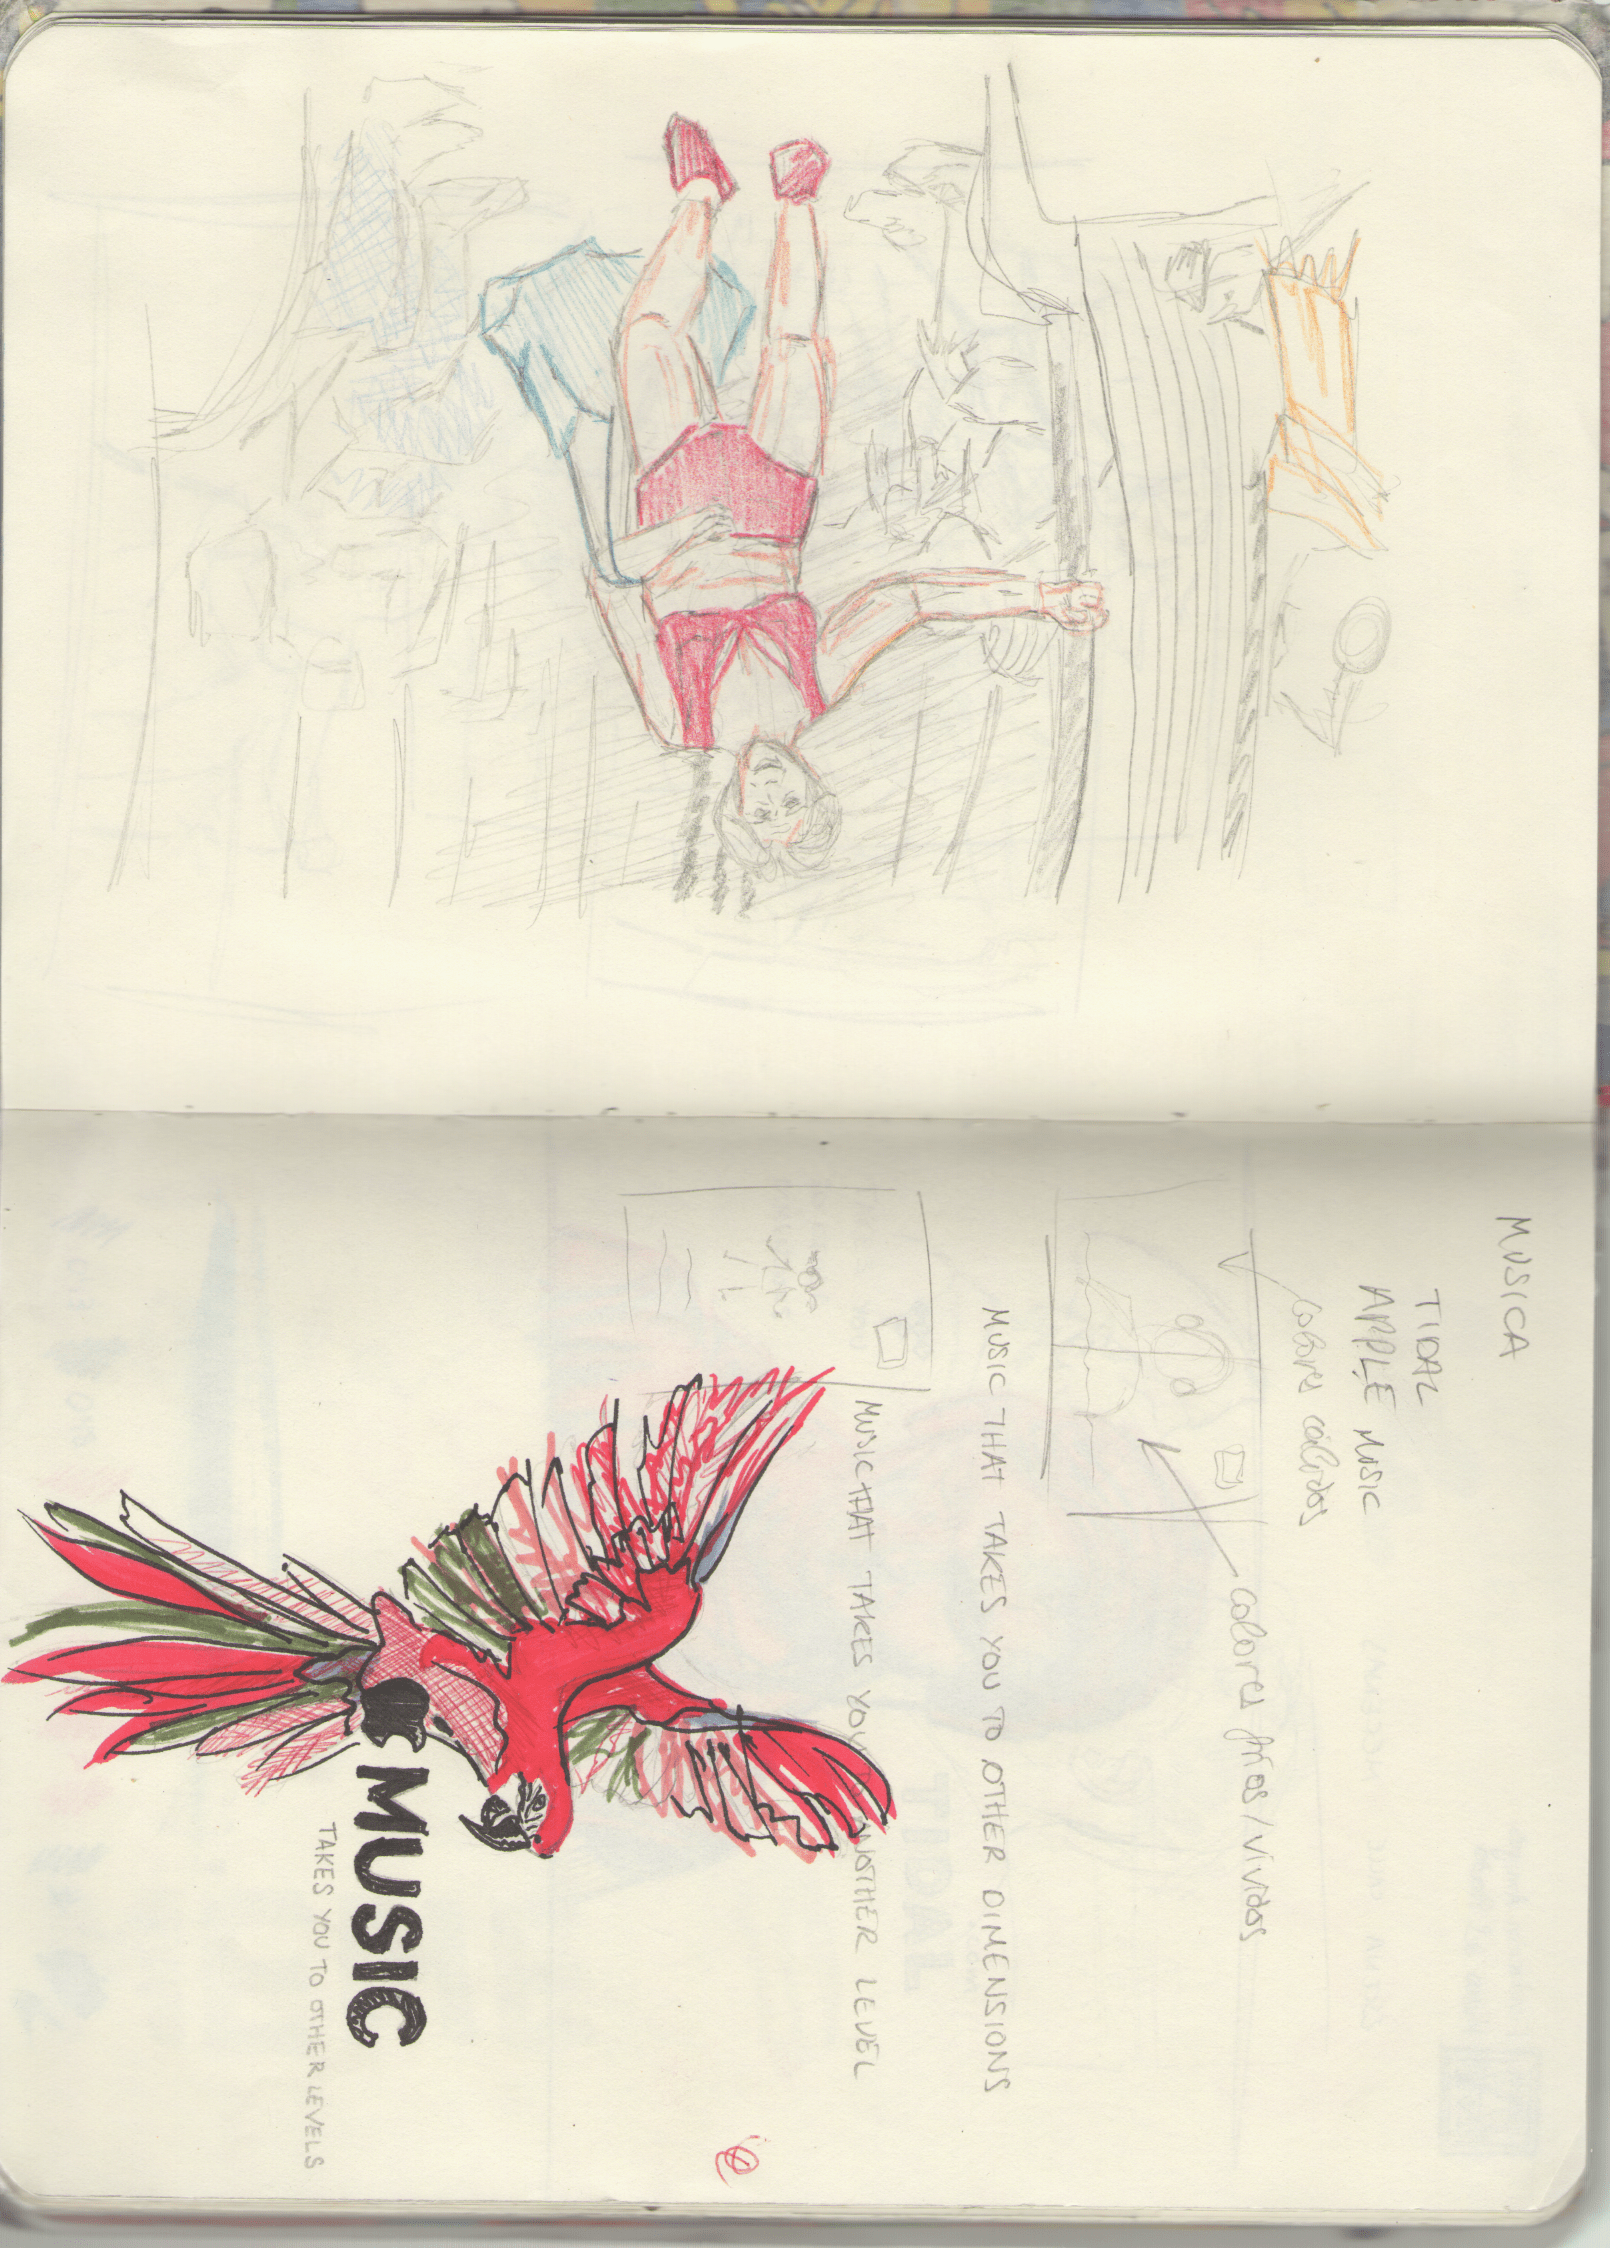 MUSICA
TIDAL
APPLE MUSIC
colores cálidos
colores fríos / vividos
MUSIC THAT TAKES YOU TO OTHER DIMENSIONS
MUSIC THAT TAKES YOU ANOTHER LEVEL
MUSIC
TAKES YOU TO OTHER LEVELS